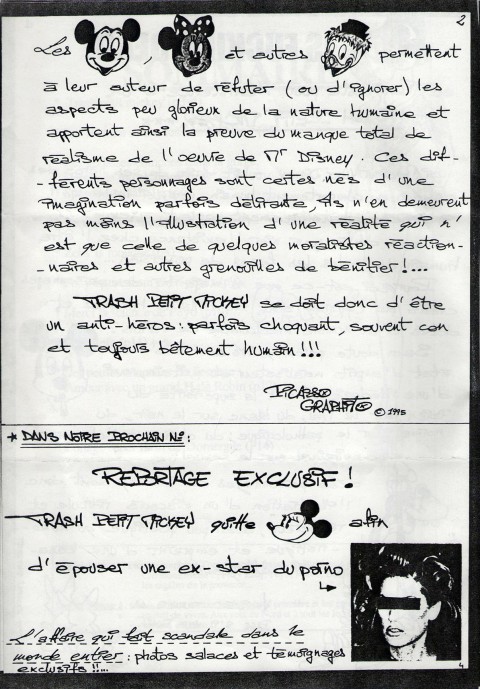 2
Les , et autres permettent
à leur auteur de réfuter (ou d'ignorer) les
aspects peu glorieux de la nature humaine et
apportent ainsi la preuve du manque total de
réalisme de l'oeuvre de Mr Disney. Ces dif-
-férents personnages sont certes nés d'une
imagination parfois délirante, ils n'en demeurent
pas moins l'illustration d'une réalité qui n'
est que celle de quelques moralistes réaction-
-naires et autres grenouilles de bénitier!...
TRASH PETIT MICKEY se doit donc d'être
un anti-héros: parfois choquant, souvent con
et toujours bêtement humain!!!
PICASSO
GRAPHITO ©1995
* DANS NOTRE PROCHAIN N°:
REPORTAGE EXCLUSIF!
TRASH PETIT MICKEY quitte afin
d'épouser une ex-star du porno
L'affaire qui fait scandale dans le
monde entier: photos salaces et témoignages
exclusifs!!...
4